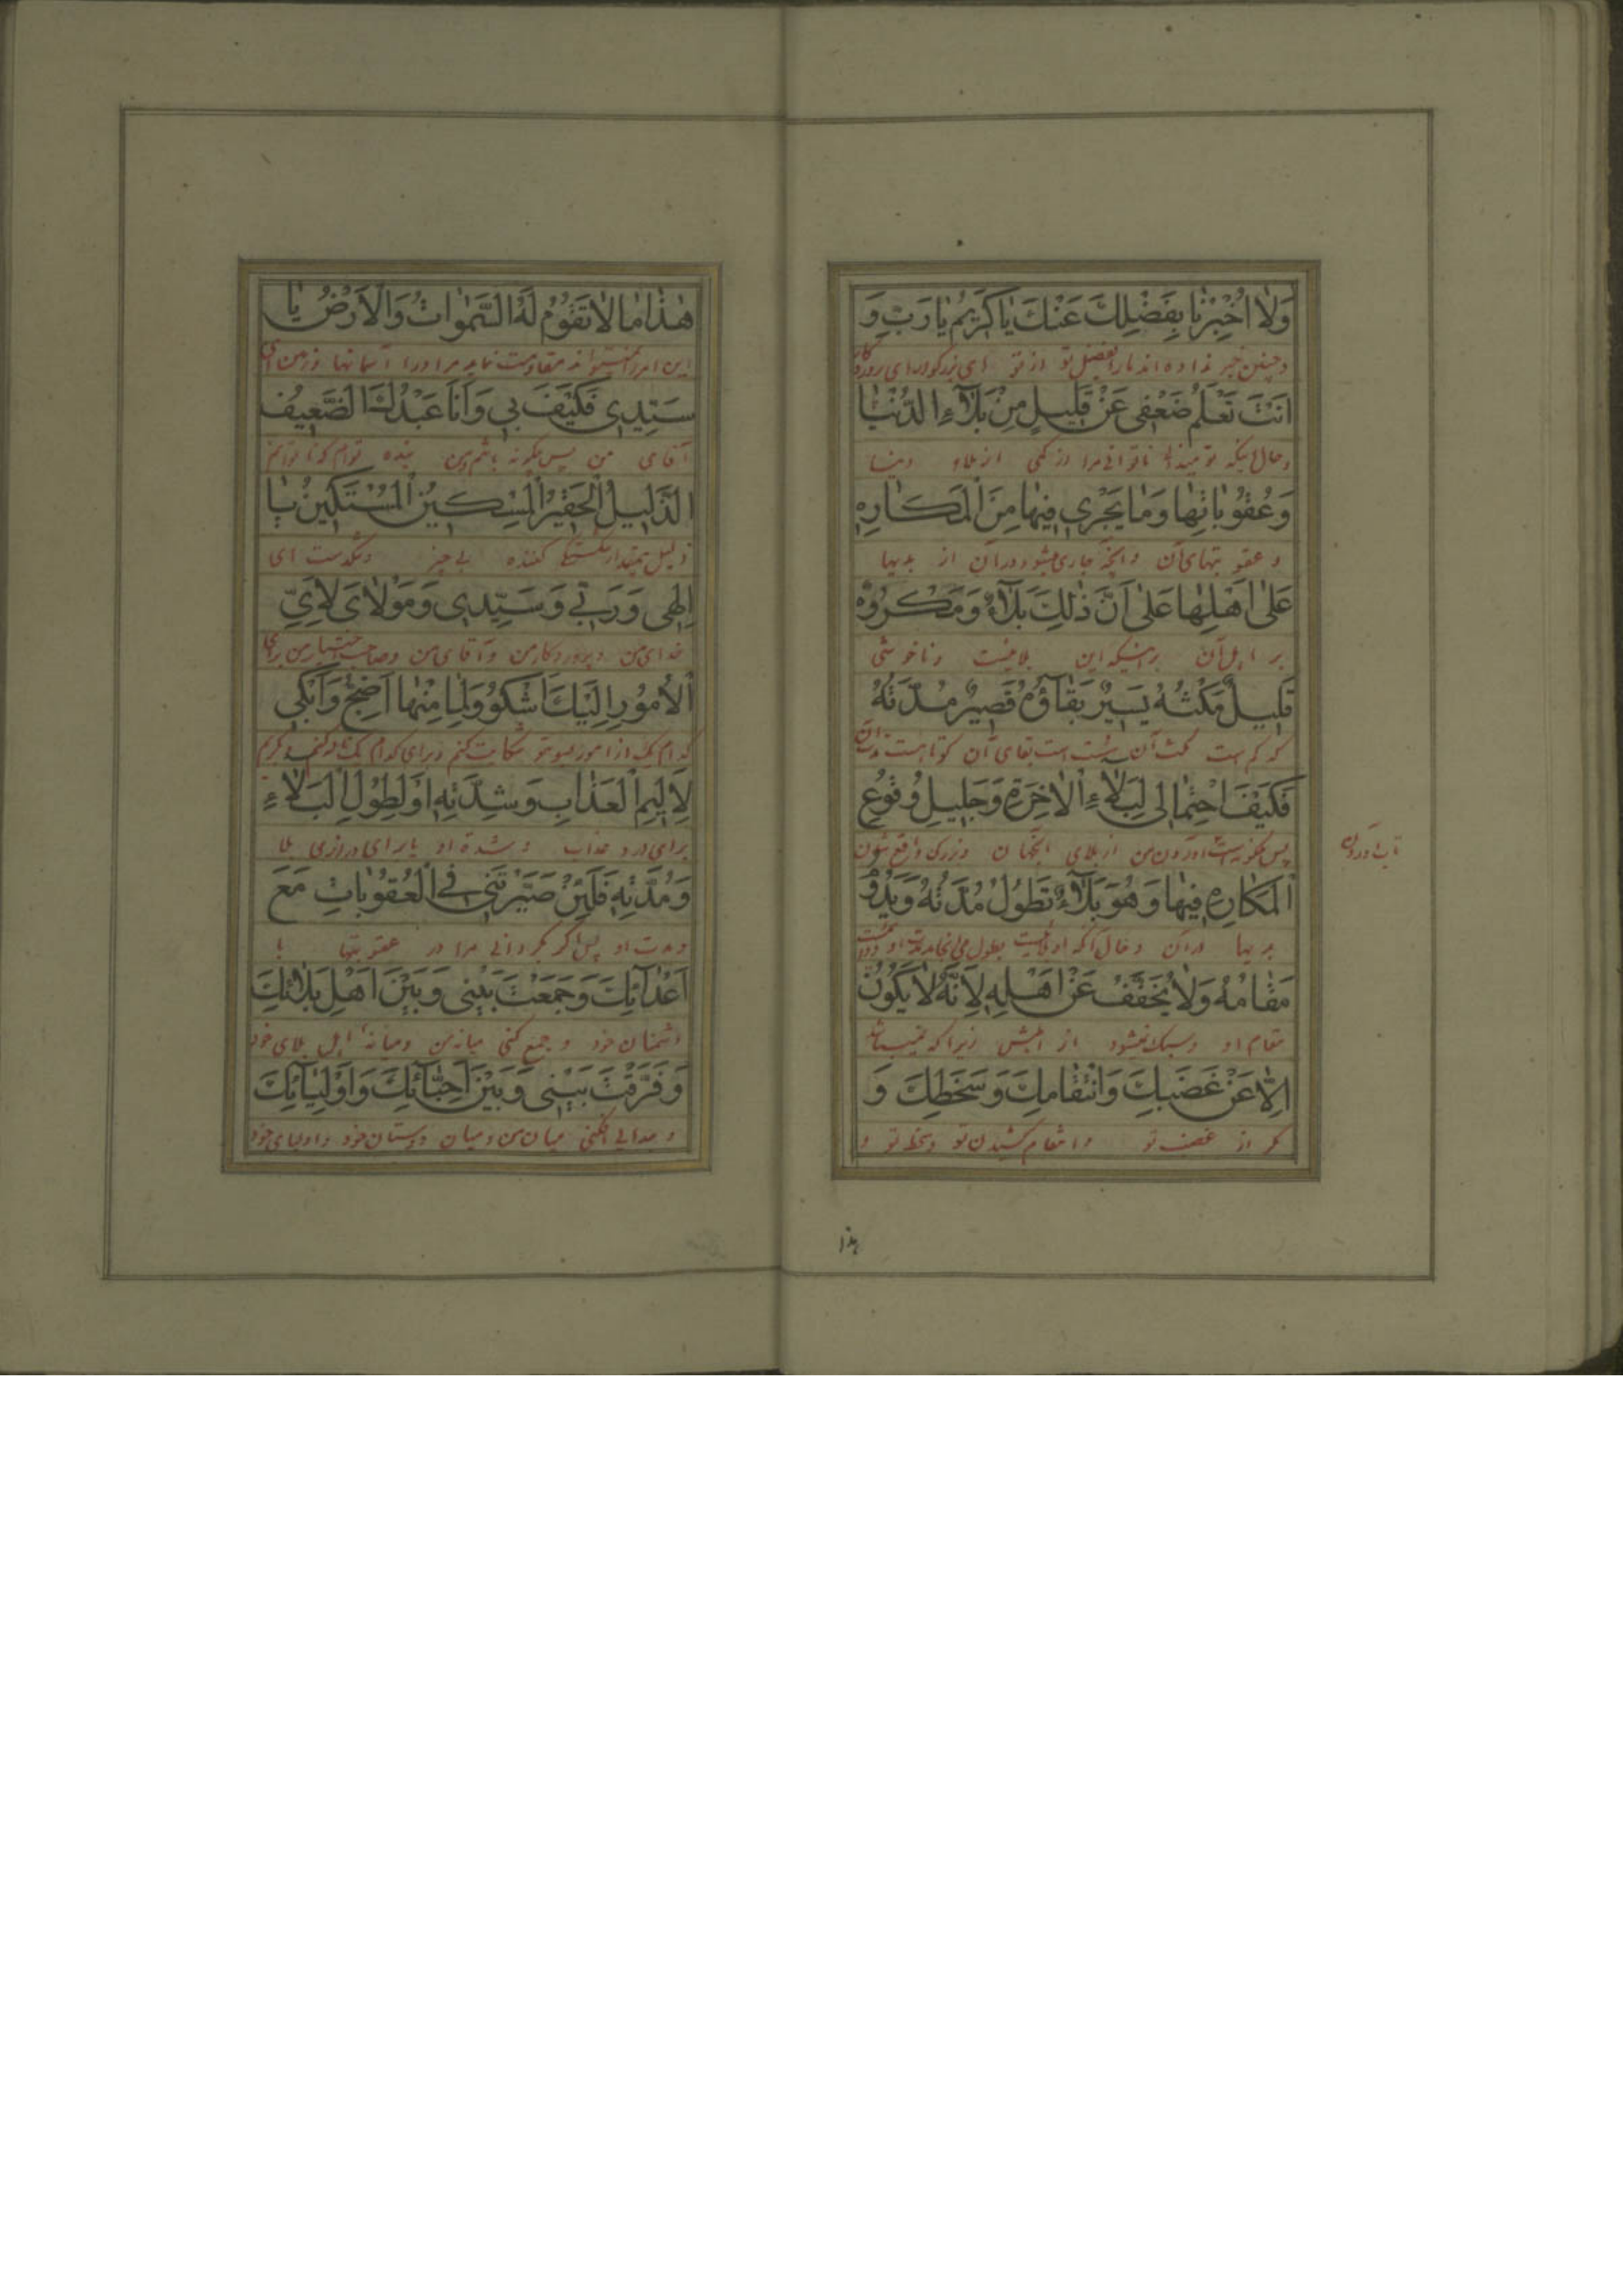 وَلاٰ اُخْبِرْنٰا بِفَضْلِكَ عَنْكَ يٰا كَرٖيمُ يٰا رَبِّ وَ
و چنین خبر نداده اند ما را بفضل تو از تو ای بزرگوار ای پروردگار
اَنْتَ تَعْلَمُ ضَعْفٖى عَنْ قَلٖيلٍ مِنْ بَلآٰءِ الدُّنْيٰا
و حال اینکه تو میدانی ناتوانی مرا از کمی از بلاء دنیا
وَعُقُوبٰاتِهٰا وَمٰا يَجْرٖى فٖيهٰا مِنَ الْمَكٰارِهِ
و عقوبتهای آن و آنچه جاری میشود در آن از بدیها
عَلٰى اَهْلِهٰا عَلٰى اَنَّ ذٰلِكَ بَلآٰءٌ وَمَكْرُوهٌ
بر اهل آن بر اینکه این بلائیست و ناخوشی
قَلٖيلٌ مَكْثُهُ يَسٖيرٌ بَقٰاؤُهُ قَصٖيرٌ مُدَّتُهُ
که کم است مکث آن است بقای آن کوتاهست مدت آن
فَكَيْفَ احْتِمٰالٖى لِبَلآٰءِ الْاٰخِرَةِ وَجَلٖيلِ وُقُوعِ
پس چگونه است آوردن من از بلای آنجهان و بزرگ واقع شدن
تاب آوردن
الْمَكٰارِهِ فٖيهٰا وَهُوَ بَلآٰءٌ تَطُولُ مُدَّتُهُ وَيَدُومُ
بدیها در آن و حال آنکه او بلائیست بطول می انجامد مدت او
مَقٰامُهُ وَلاٰ يُخَفَّفُ عَنْ اَهْلِهِ لِاَنَّهُ لاٰ يَكُونُ
مقام او و سبک نمیشود از اهلش زیرا که نمیباشد
اِلاّٰ عَنْ غَضَبِكَ وَانْتِقٰامِكَ وَسَخَطِكَ وَ
مگر از غضب تو و انتقام کشیدن تو و سخط تو و
هٰذا
هٰذٰا مٰا لاٰ تَقُومُ لَهُ السَّمٰوٰاتُ وَالْاَرْضُ يٰا
این امریست نمیتواند مقاومت نماید مر او را آسمانها و زمین ای
سَيِّدٖى فَكَيْفَ بٖى وَاَنَا عَبْدُكَ الضَّعٖيفُ
آقای من پس چگونه باشم من بنده توام که ناتوانم
الذَّلٖيلُ الْحَقٖيرُ الْمِسْكٖينُ الْمُسْتَكٖينُ يٰا
ذلیل بیمقدار شکستگی کننده بی چیز و تنگدست ای
اِلٰهٖى وَرَبّٖى وَسَيِّدٖى وَمَوْلاٰىَ لِاَىِّ
خدای من و پروردکار من و آقای من و صاحب اختیار من برای
الْاُمُورِ اِلَيْكَ اَشْكُو وَلِمٰا مِنْهٰا اَضِجُّ وَاَبْكٖى
کدام یک از امور بسوی تو شکایت کنم و برای کدام یک ناله کنم و گریم
لِاَلٖيمِ الْعَذٰابِ وَشِدَّتِهِ اَوْ لِطُولِ الْبَلآٰءِ
برای درد عذاب و شدة او یا برای درازی بلا
وَمُدَّتِهِ فَلَئِنْ صَيَّرْتَنٖى فِى الْعُقُوبٰاتِ مَعَ
و مدت او پس اگر بگردانی مرا در عقوبتها با
اَعْدٰآئِكَ وَجَمَعْتَ بَيْنٖى وَبَيْنَ اَهْلِ بَلٰائِكَ
دشمنان خود و جمع کنی میانه من و میانه اهل بلای خود
وَفَرَّقْتَ بَيْنٖى وَبَيْنَ اَحِبّٰآئِكَ وَاَوْلِيٰآئِكَ
و جدائی افکنی میان من و میان دوستان خود و اولیای خود